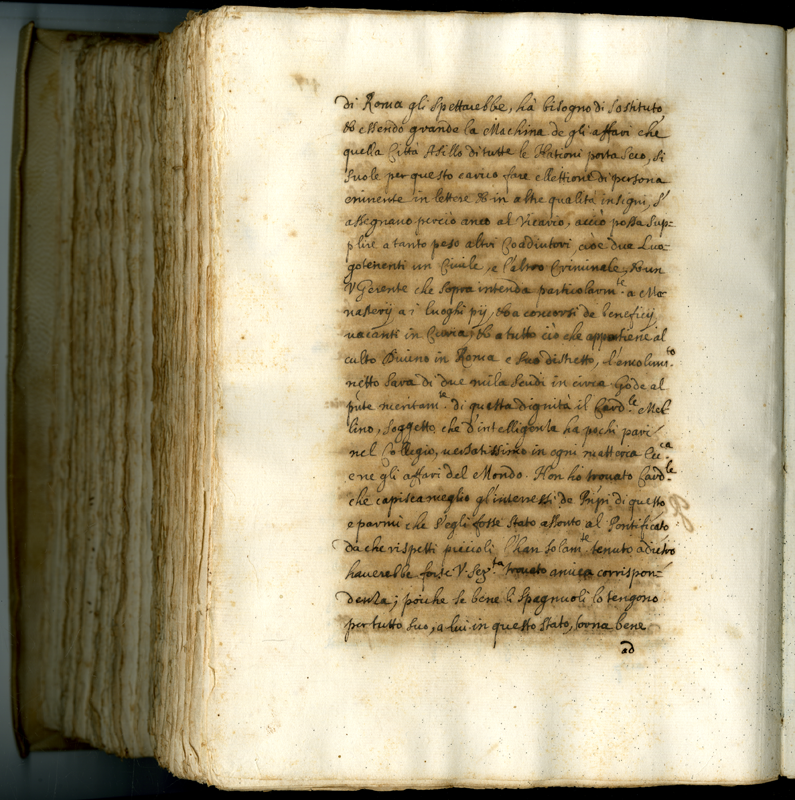 di Roma gli spettarebbe, hà bisogno di sostituto
et essendo grande la Machina de gli affari che
quella Città Asillo di tutte le Nationi porta seco, si
suole per questo carico fare elettione di persona
eminente in lettere et in altre qualità insigni, s'
assegnano perciò anco al Vicario, acciò possa sup-
plire a tanto peso altri Coadiutori, cioè due Luo-
gotenenti un Civile, e l'altro Criminale, et un
V Gerente che sopra intenda particolarm.te a Mo-
nasterij a i luoghi pij, et a concorsi de beneficij
vacanti in Curia, et a tutto ciò che appartiene al
culto Divino in Roma e suo distretto, l'emolum.to
netto sarà di due mila scudi in circa. Gode al
pñte meritam.te di questa dignità il Card.le Mel-
lino, soggetto che d'intelligenza ha pochi pari
nel Collegio, versatissimo in ogni matteria
gli affari del Mondo. Non hò trovato Card.le
che capisca meglio gl'interessi de Prñpi di questo
e parmi che s'egli fosse stato assonto al Pontificato
da che rispetti piccioli l'han solam.te tenuto adietro
haverebbe forse V. Ser.ta trovato amica corrispon-
denza; poiche se bene li Spagnuoli lo tengono
per tutto suo, a lui in questo stato, torna bene
ad